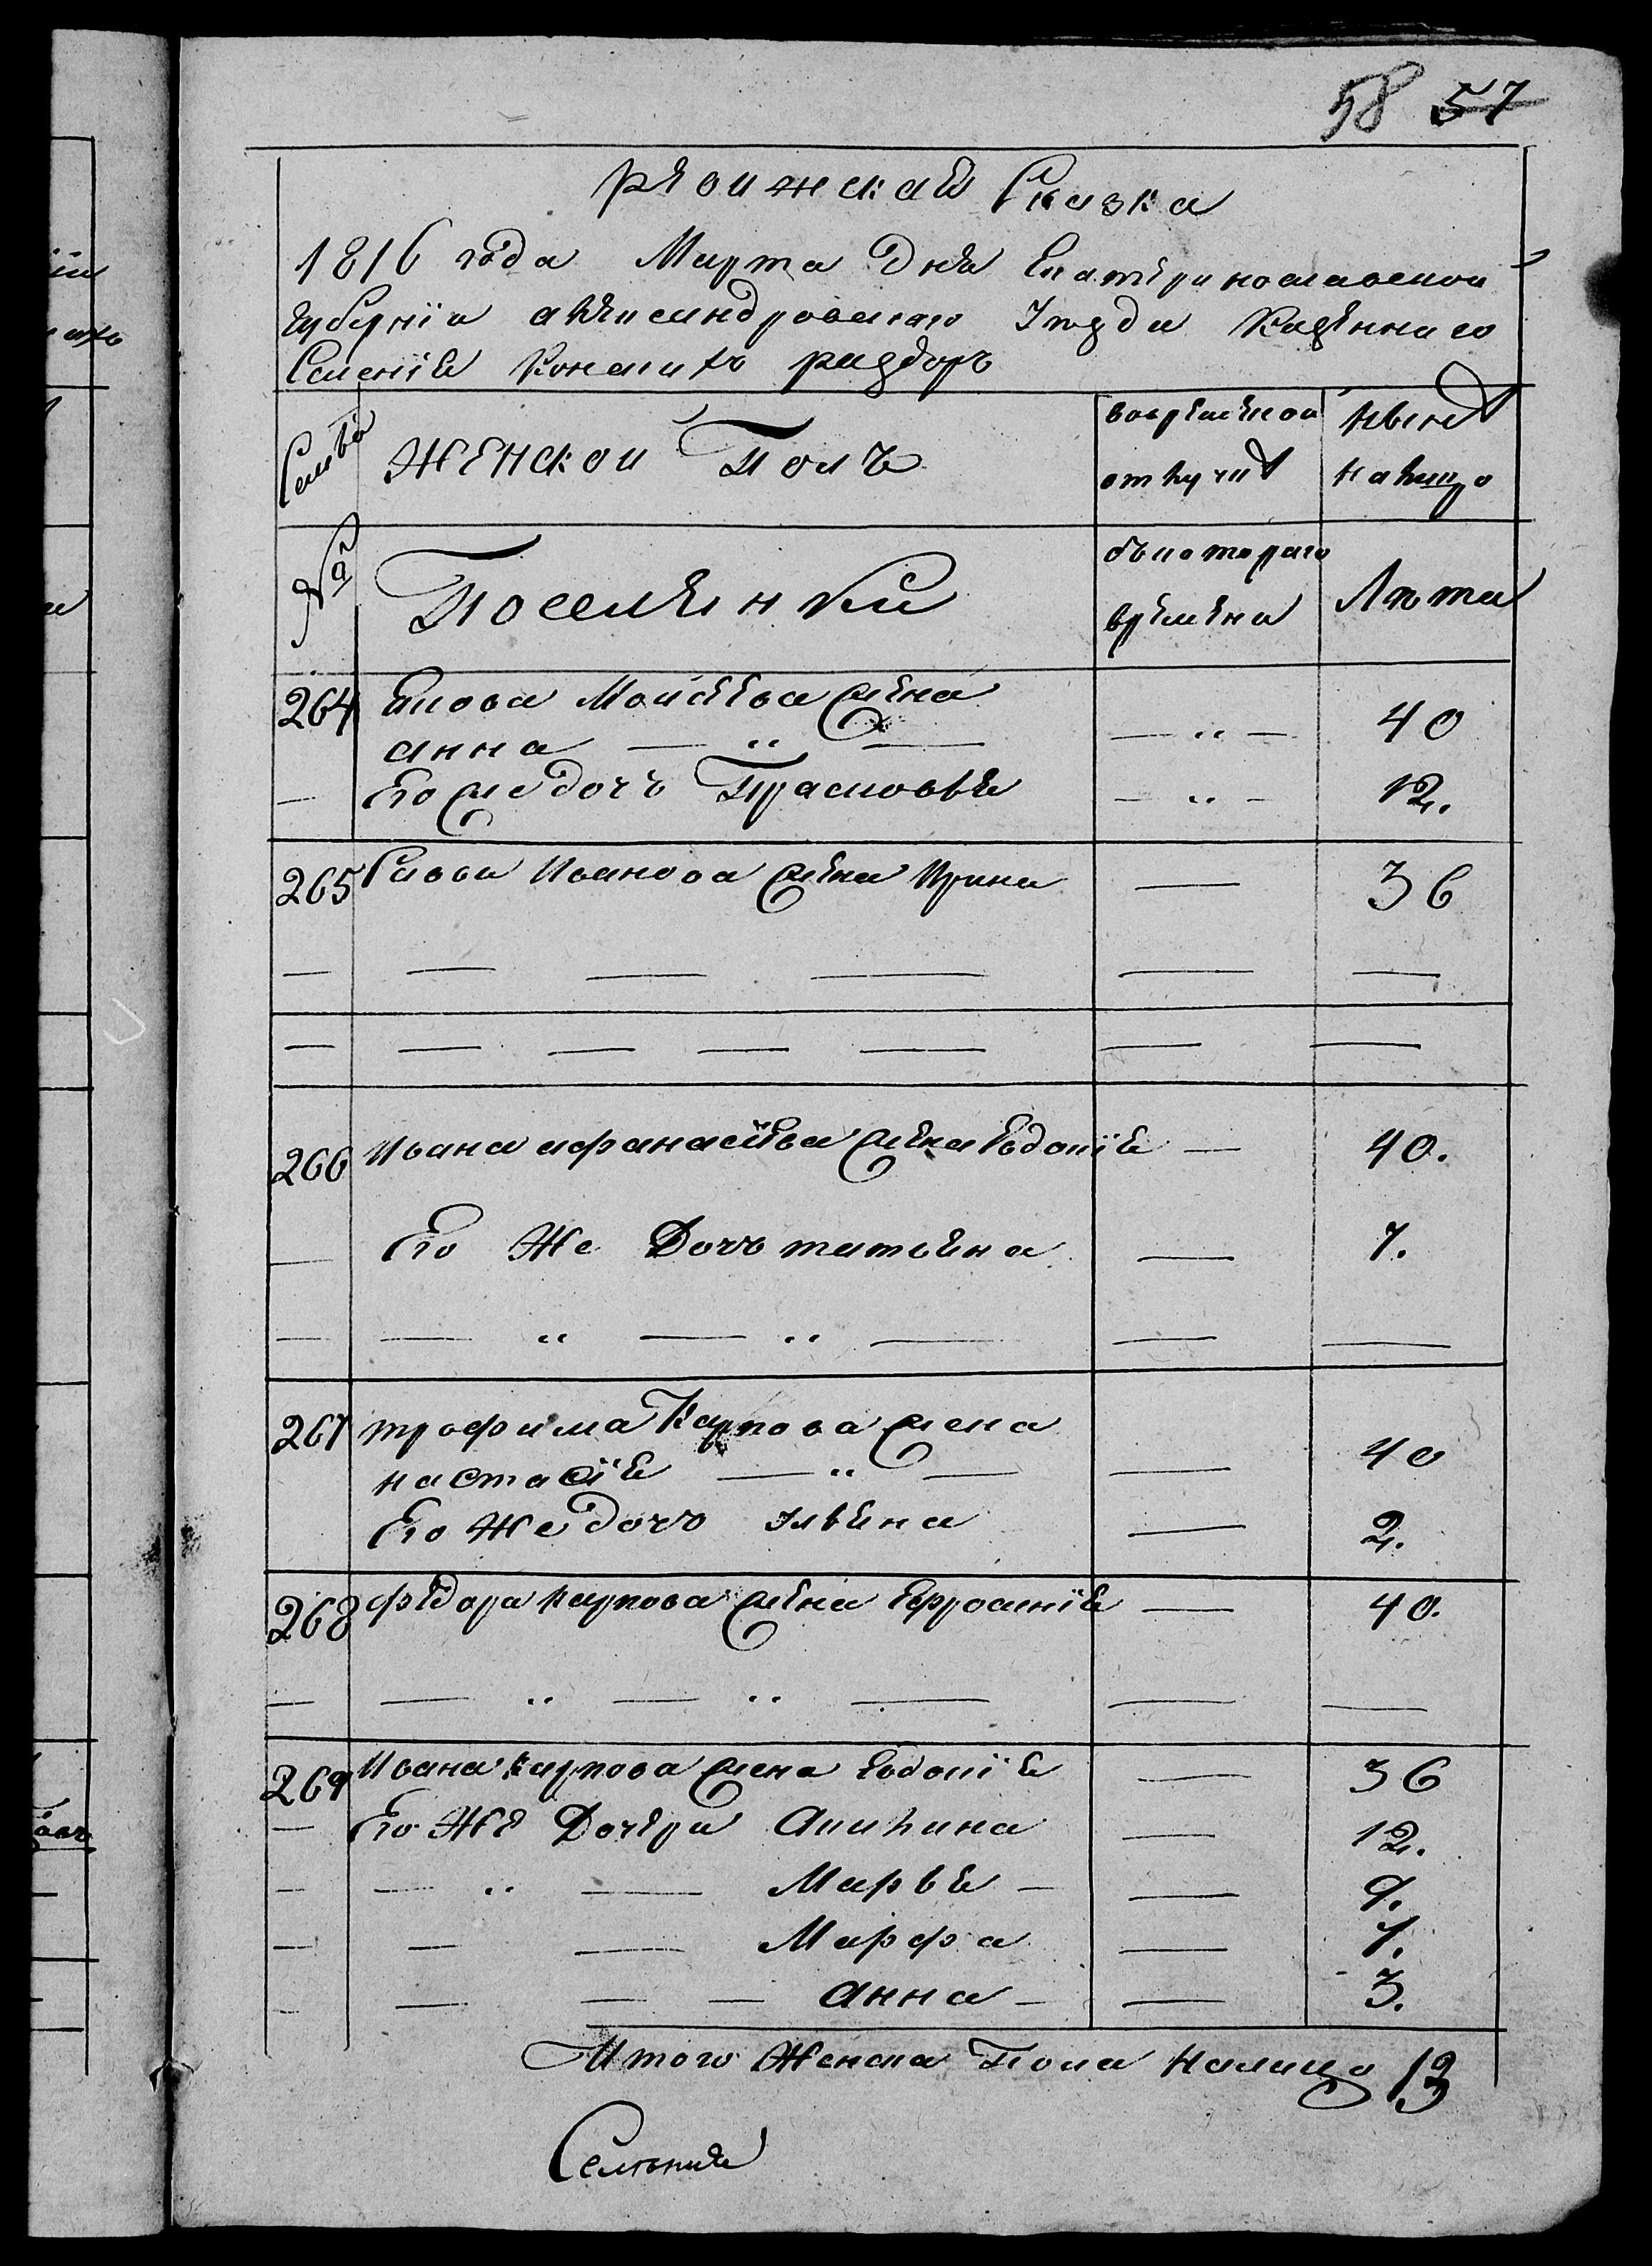 58 57
рѣвижская Сказка
1816 года Марта дня Екатеринославской
губернїи александровскаго Уезда Казенного
Селенїя Конскихъ раздоръ
Семьи
женской Полъ
вовременной
отлучкѣ
Нынѣ
налицо
№а
Поселянки
съкотораго
времяни
Лѣта
264 Якова Мойсѣева жена
анна — " — — " — 40
— Его же дочь Прасковья — " — 12.
265 Савы Иванова жена Ирина — 36
266 Ивана афанасїева жена Евдокїя — 40.
— Его же дочь татьяна — 7.
267 трофима Карпова жена
настасїя — " — — 40
Его же дочь ульяна — 2.
268 федора карпова жена Ефросинїя — 40.
269 Ивана карпова жена Евдокїя — 36
— Его же Дочери Акилина — 12.
— — " — Марья — — 9.
— — — Марфа — 7.
— — — — анна — — 3.
Итого женска Пола налицо 13
Селския